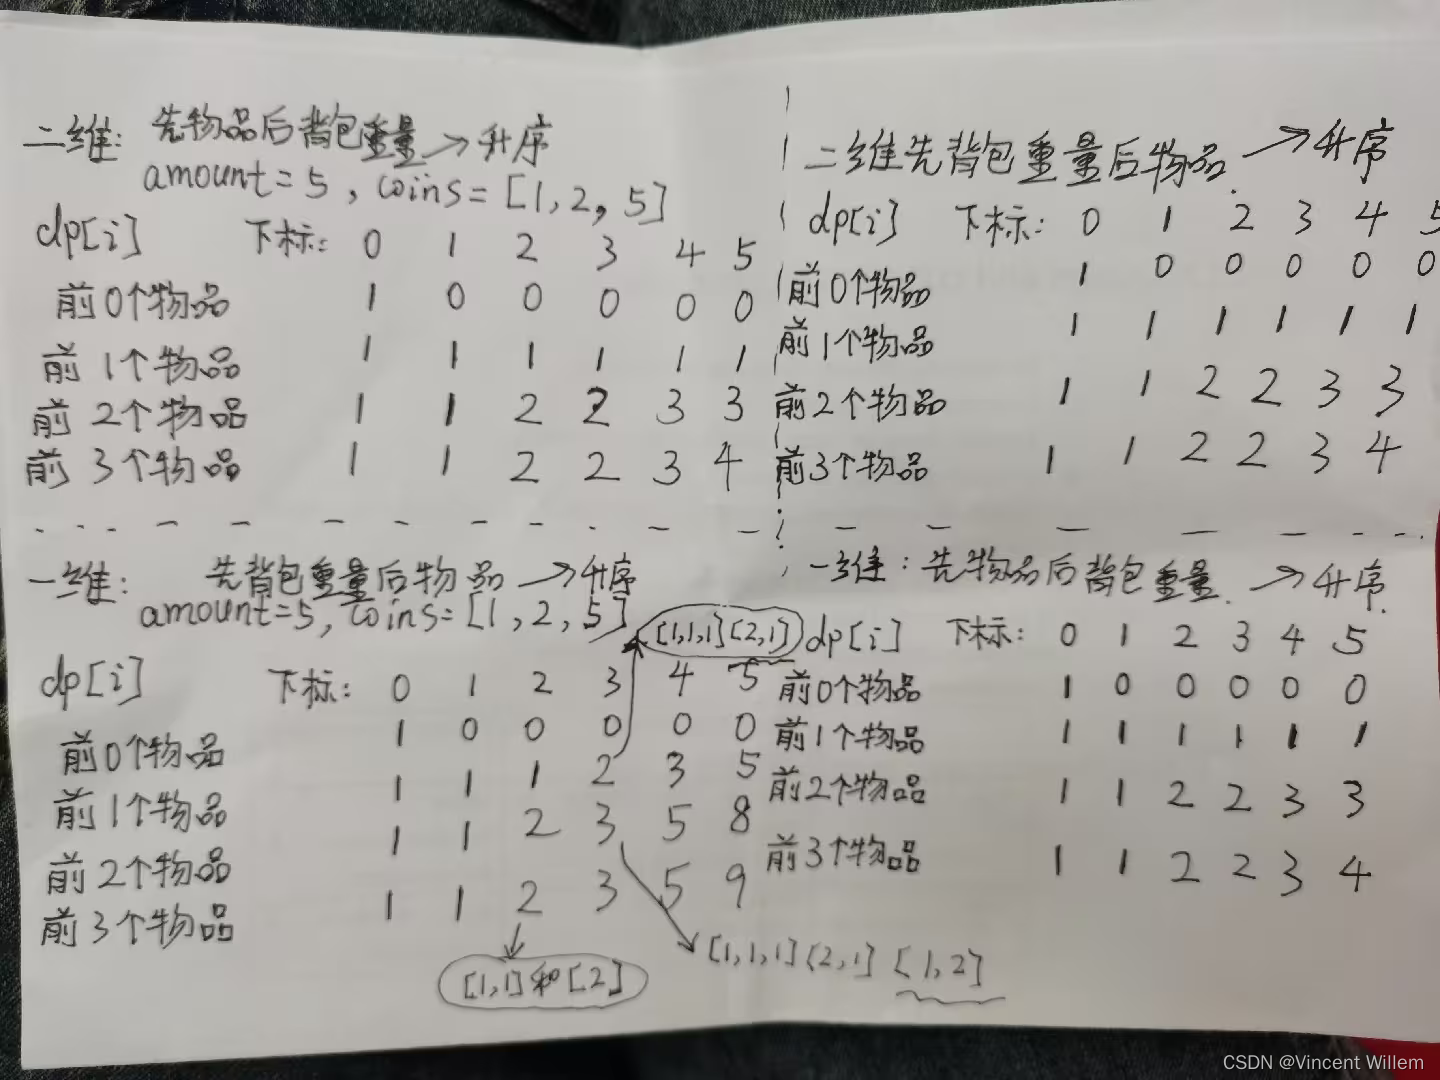 二维: 先物品后背包重量 → 升序
amount = 5 , coins = [1, 2, 5]
dp[i] 下标: 0 1 2 3 4 5
前0个物品 1 0 0 0 0 0
前1个物品 1 1 1 1 1 1
前2个物品 1 1 2 2 3 3
前3个物品 1 1 2 2 3 4
二维先背包重量后物品. → 升序
dp[i] 下标: 0 1 2 3 4 5
前0个物品 1 0 0 0 0 0
前1个物品 1 1 1 1 1 1
前2个物品 1 1 2 2 3 3
前3个物品 1 1 2 2 3 4
一维: 先背包重量后物品 → 升序
amount=5, coins=[1,2,5]
[1,1,1][2,1]
dp[i] 下标: 0 1 2 3 4 5
前0个物品 1 0 0 0 0 0
前1个物品 1 1 1 2 3 5
前2个物品 1 1 2 3 5 8
前3个物品 1 1 2 3 5 9
[1,1]和[2]
[1,1,1][2,1] [1,2]
一维: 先物品后背包重量. → 升序.
dp[i] 下标: 0 1 2 3 4 5
前0个物品 1 0 0 0 0 0
前1个物品 1 1 1 1 1 1
前2个物品 1 1 2 2 3 3
前3个物品 1 1 2 2 3 4
CSDN @Vincent Willem